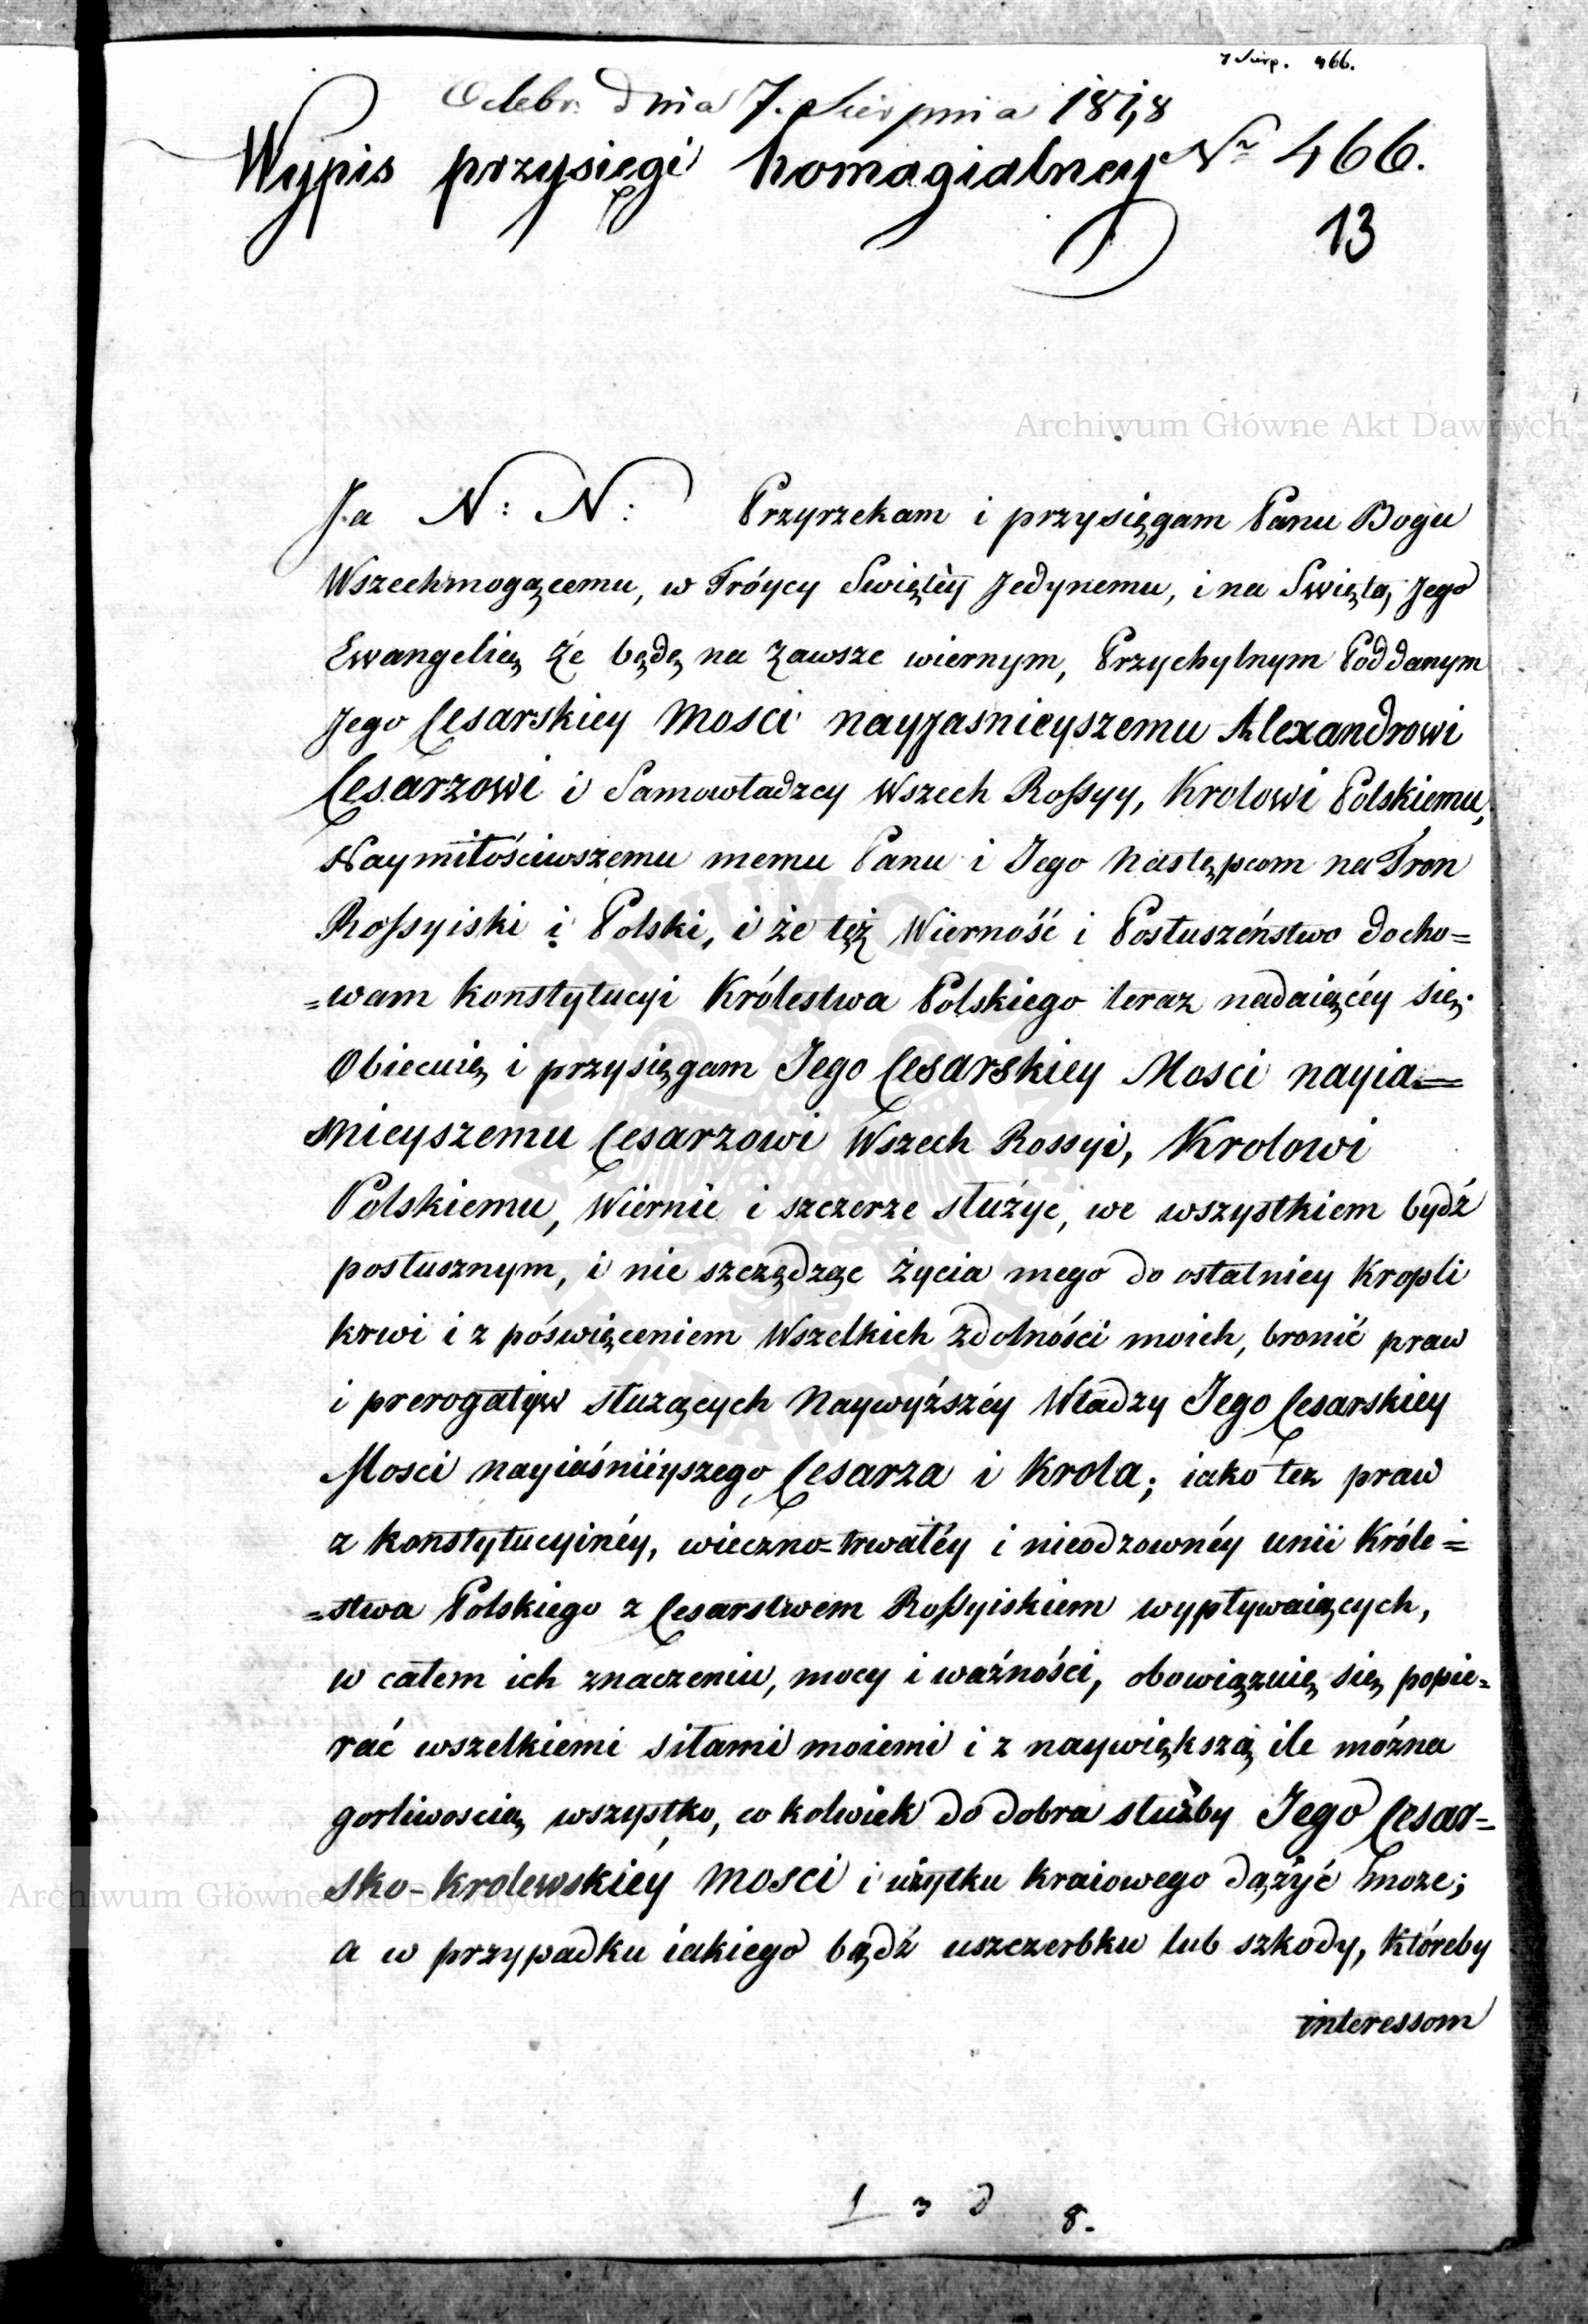 7 Sierp. 466.
Odebr. dnia 7. Sierpnia 1818
Wypis przysięgi homagialney Nr 466.
13
Archiwum Główne Akt Dawnych
Ja N: N: Przyrzekam i przysięgam Panu Bogu
Wszechmogącemu, w Tróycy Swiętéy Jedynemu, i na Swiętą Jego
Ewangelią że będę na zawsze wiernym, Przychylnym Poddanym
Jego Cesarskiey Mosci nayjasnieyszemu Alexandrowi
Cesarzowi i Samowładzcy Wszech Rossyy, Krolowi Polskiemu,
Naymiłościwszemu memu Panu i Jego Następcom na Tron
Rossyiski i Polski, i że tęż Wierność i Posłuszeństwo docho=
=wam konstytucyi Królestwa Polskiego teraz nadaiącéy się.
Obiecuię i przysięgam Jego Cesarskiey Mosci nayia=
snieyszemu Cesarzowi Wszech Rossyi, Krolowi
Polskiemu, Wiernie i szczerze służyc, we wszystkiem bydź
posłusznym, i nie szczędząc życia mego do ostatniey kropli
krwi i z póswięceniem Wszelkich zdolności moich, bronić praw
i prerogatyw służących Naywyższéy Władzy Jego Cesarskiey
Mosci nayiaśniéyszego Cesarza i Krola; iako tez praw
z konstytucyinéy, wieczno=trwałéy i nieodzownéy unii Króle=
=stwa Polskiego z Cesarstwem Rossyiskiem wypływaiących,
w całem ich znaczeniu, mocy i ważności, obowiązuię się popie=
rać wszelkiemi siłami moiemi i z naywiększą ile można
gorliwoscią wszystko, co kolwiek do dobra służby Jego Cesar=
sko-krolewskiéy Mosci i użytku kraiowego dążyć może;
Archiwum Główne Akt Dawnych
a w przypadku iakiego bądź uszczerbku lub szkody, któreby
interessom